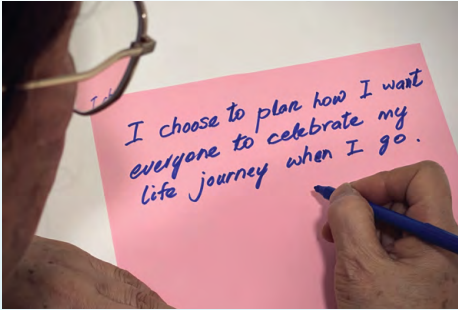 I choose to plan how I want
everyone to celebrate my
life journey when I go.